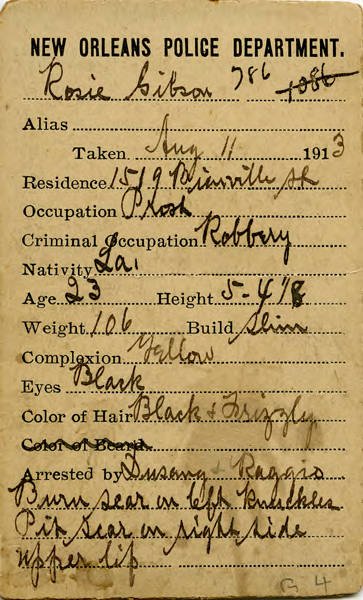 NEW ORLEANS POLICE DEPARTMENT.
Rosie Gibson 786 1086
Alias
Taken Aug 11 1913
Residence 1519 Bienville St
Occupation Prost
Criminal Occupation Robbery
Nativity La.
Age 23 Height 5-4 1/8
Weight 106 Build Slim
Complexion Yellow
Eyes Black
Color of Hair Black & Frizzly
Color of Beard
Arrested by Dusang & Raggio
Burn scar on left knuckles
Pit scar on right side
upper lip
G 4